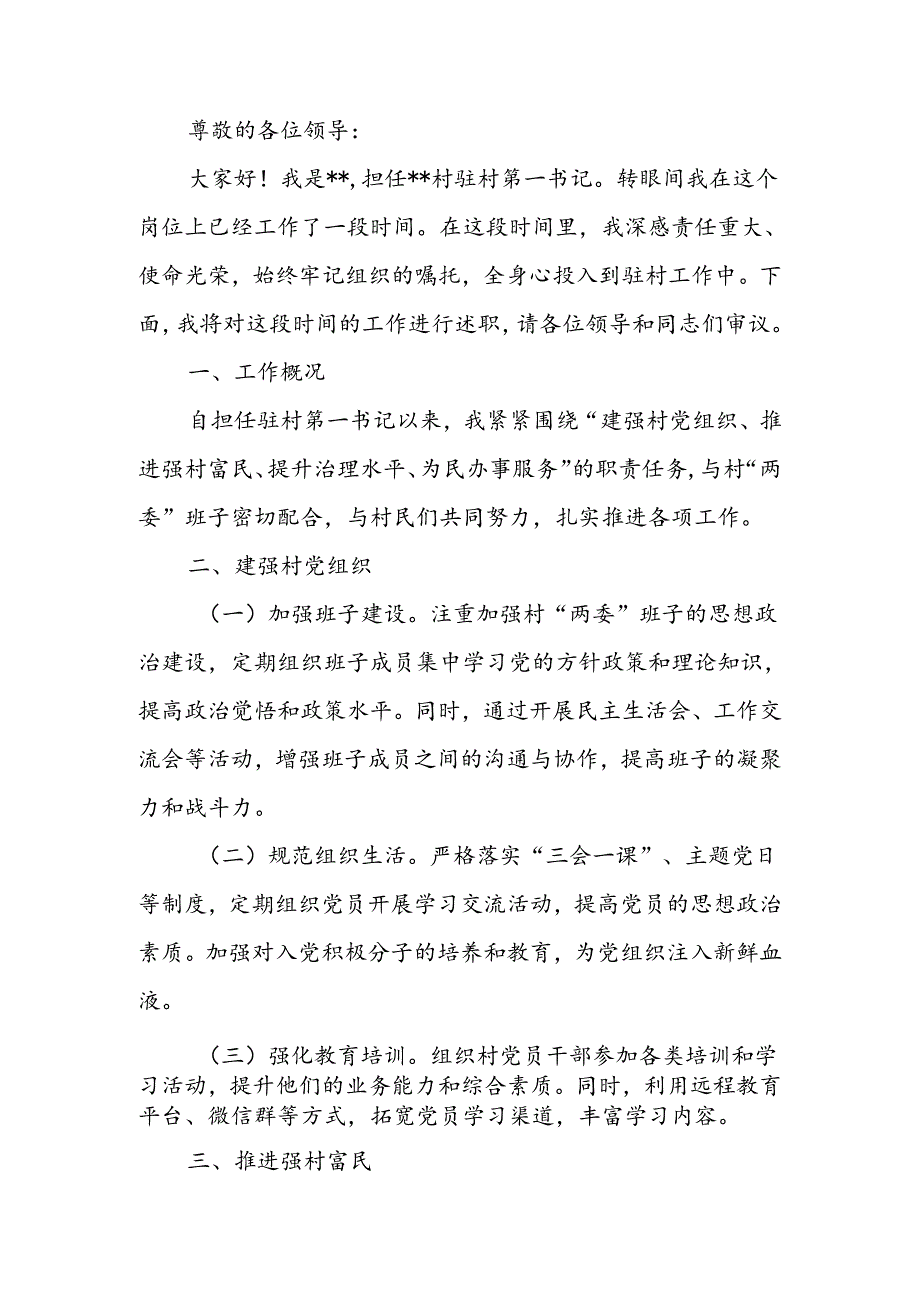 尊敬的各位领导：
大家好！我是**,担任**村驻村第一书记。转眼间我在这个
岗位上已经工作了一段时间。在这段时间里，我深感责任重大、
使命光荣，始终牢记组织的嘱托，全身心投入到驻村工作中。下
面,我将对这段时间的工作进行述职,请各位领导和同志们审议。
一、工作概况
自担任驻村第一书记以来，我紧紧围绕“建强村党组织、推
进强村富民、提升治理水平、为民办事服务”的职责任务,与村“两
委”班子密切配合，与村民们共同努力，扎实推进各项工作。
二、建强村党组织
（一）加强班子建设。注重加强村“两委”班子的思想政
治建设，定期组织班子成员集中学习党的方针政策和理论知识，
提高政治觉悟和政策水平。同时，通过开展民主生活会、工作交
流会等活动，增强班子成员之间的沟通与协作，提高班子的凝聚
力和战斗力。
（二）规范组织生活。严格落实“三会一课”、主题党日
等制度，定期组织党员开展学习交流活动，提高党员的思想政治
素质。加强对入党积极分子的培养和教育，为党组织注入新鲜血
液。
（三）强化教育培训。组织村党员干部参加各类培训和学
习活动，提升他们的业务能力和综合素质。同时，利用远程教育
平台、微信群等方式，拓宽党员学习渠道，丰富学习内容。
三、推进强村富民